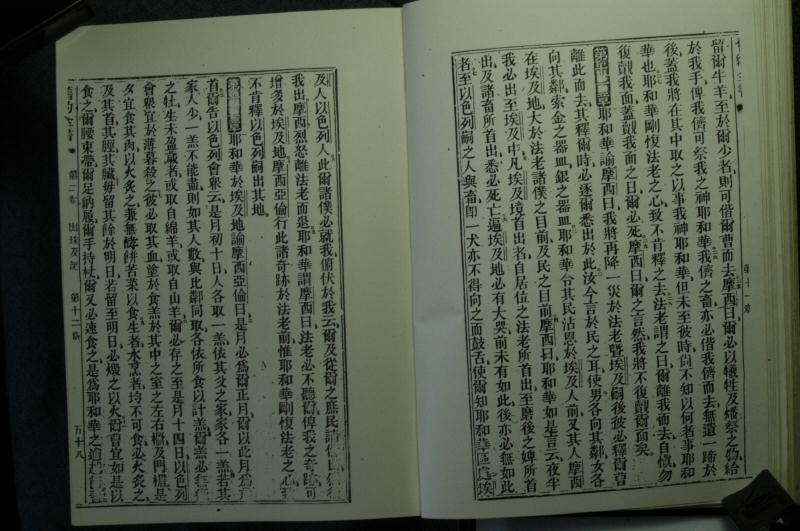 留爾牛羊至於爾少者則可偕爾曹而去摩西曰爾必以犧牲及燔祭之物給
於我手俾我儕可祭我之神耶和華我儕之畜亦必偕我儕而去無遺一蹄於
後蓋我將在其中取之以事我神耶和華但未至彼時尙不知以何者事耶和
華也耶和華剛愎法老之心致不肯釋之去法老謂之曰爾離我而去自慎勿
復覿我面蓋覿我面之日爾必死摩西曰爾之言然我將不復覿爾面矣
第十一章 耶和華諭摩西曰我將再降一災於法老曁埃及嗣後彼必釋爾曹
離此而去其釋爾時必逐爾悉出於此汝今言於民之耳使男各向其鄰女各
向其鄰索金之器皿銀之器皿耶和華令其民沾恩於埃及人前又其人摩西
在埃及地大於法老諸僕之目前及民之目前摩西曰耶和華如是言云夜半
我必出至埃及中凡埃及境首出者自居位之法老所首出至磨後之婢所首
出及諸畜所首出悉必死亡遍埃及地必有大哭前未有如此後亦必無如此
者至以色列嗣之人與畜卽一犬亦不得向之而鼓舌使爾知耶和華區別埃
第十一章
及人以色列人此爾諸僕必就我俯伏於我云爾及從爾之庶民請
我出摩西烈怒離法老而退耶和華謂摩西曰法老必不聽爾俾我之奇跡可
增多於埃及地摩西亞倫行此諸奇跡於法老前惟耶和華剛愎法老之心
不肯釋以色列嗣出其地
第十二章 耶和華於埃及地諭摩西亞倫曰是月必爲爾正月爾以此月爲
首爾告以色列會衆云是月初十日人各取一羔依其父之家家各一羔若其
家人少一羔不能盡則如其人數與比鄰同取各依所食以計羔爾羔必
之牡生未盈歲者或取自綿羊或取自山羊爾必存之至是月十四日以色列
會衆宜於薄暮殺之彼必取其血塗於食羔於其中之室之左右橛及門楣是
夕宜食其肉以火炙之兼無酵餅苦菜以食生者水烹者均不可食必火炙之
及其首其脛其臟毋留其餘於明日若留至明日必燬之以火爾曹宜如是以
食之爾腰束帶爾足納履爾手持杖爾又必速食之是爲耶和華之逾越
舊約全書 第二卷 出埃及記 第十二章 五十八